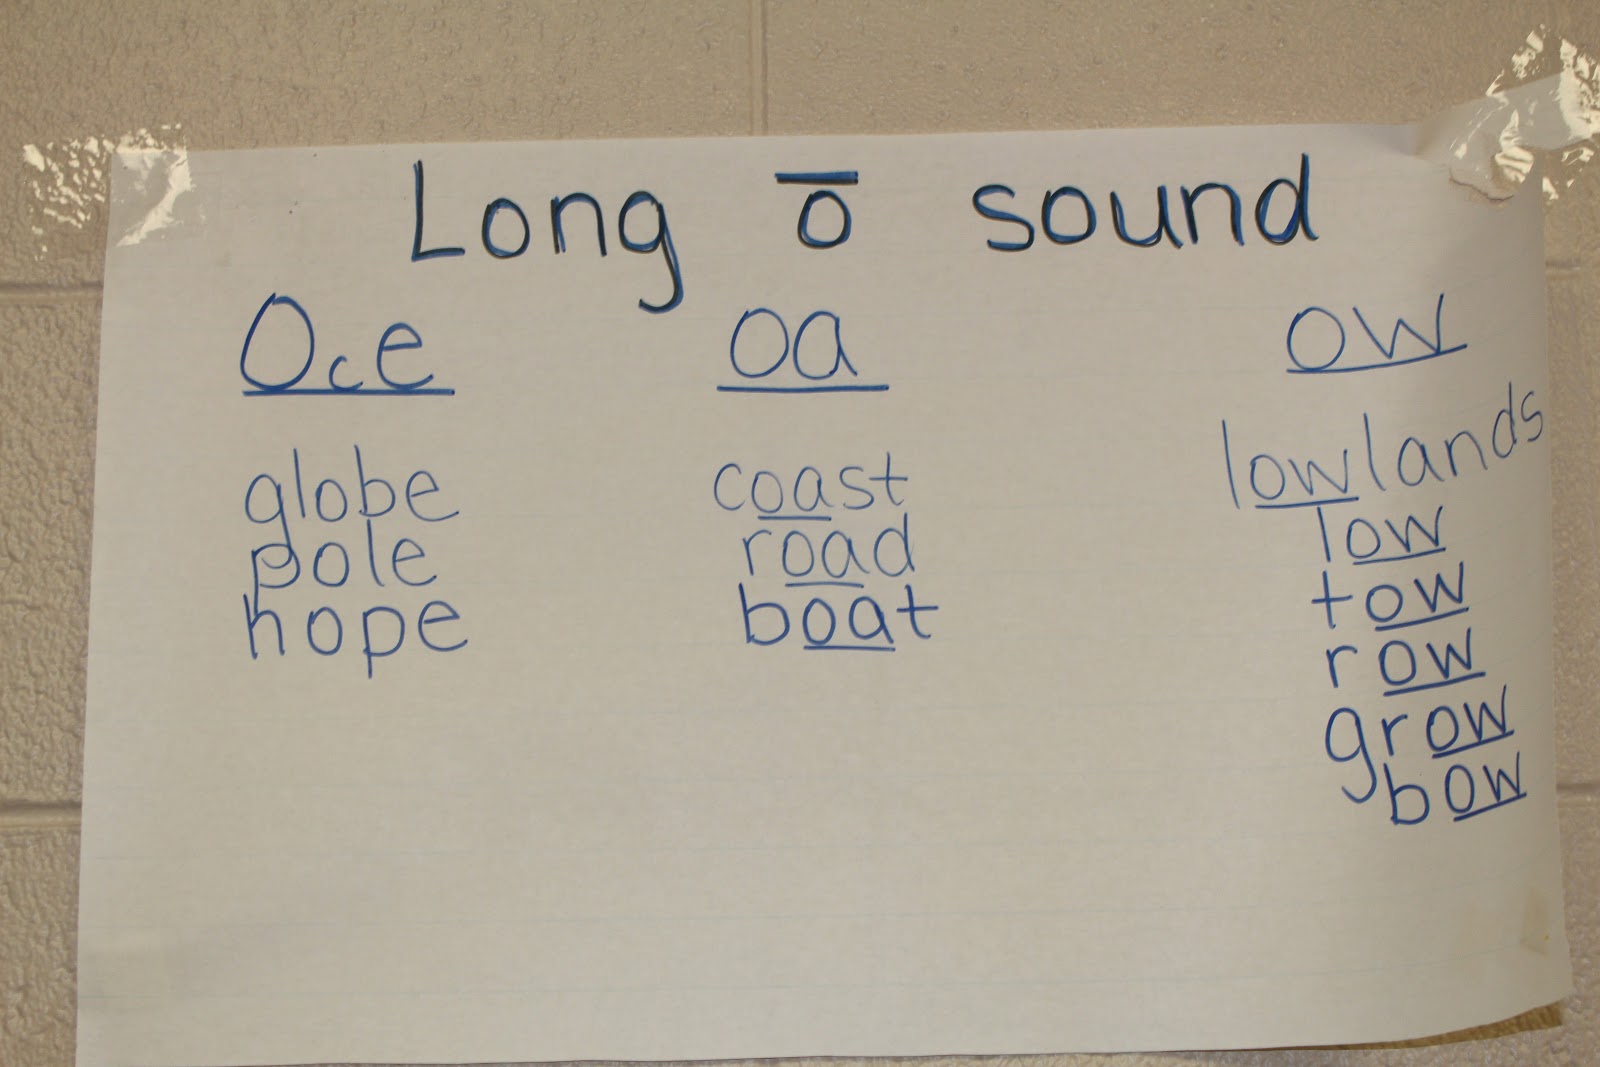 Long ō sound
Oce oa ow
globe coast lowlands
pole road low
hope boat tow
row
grow
bow